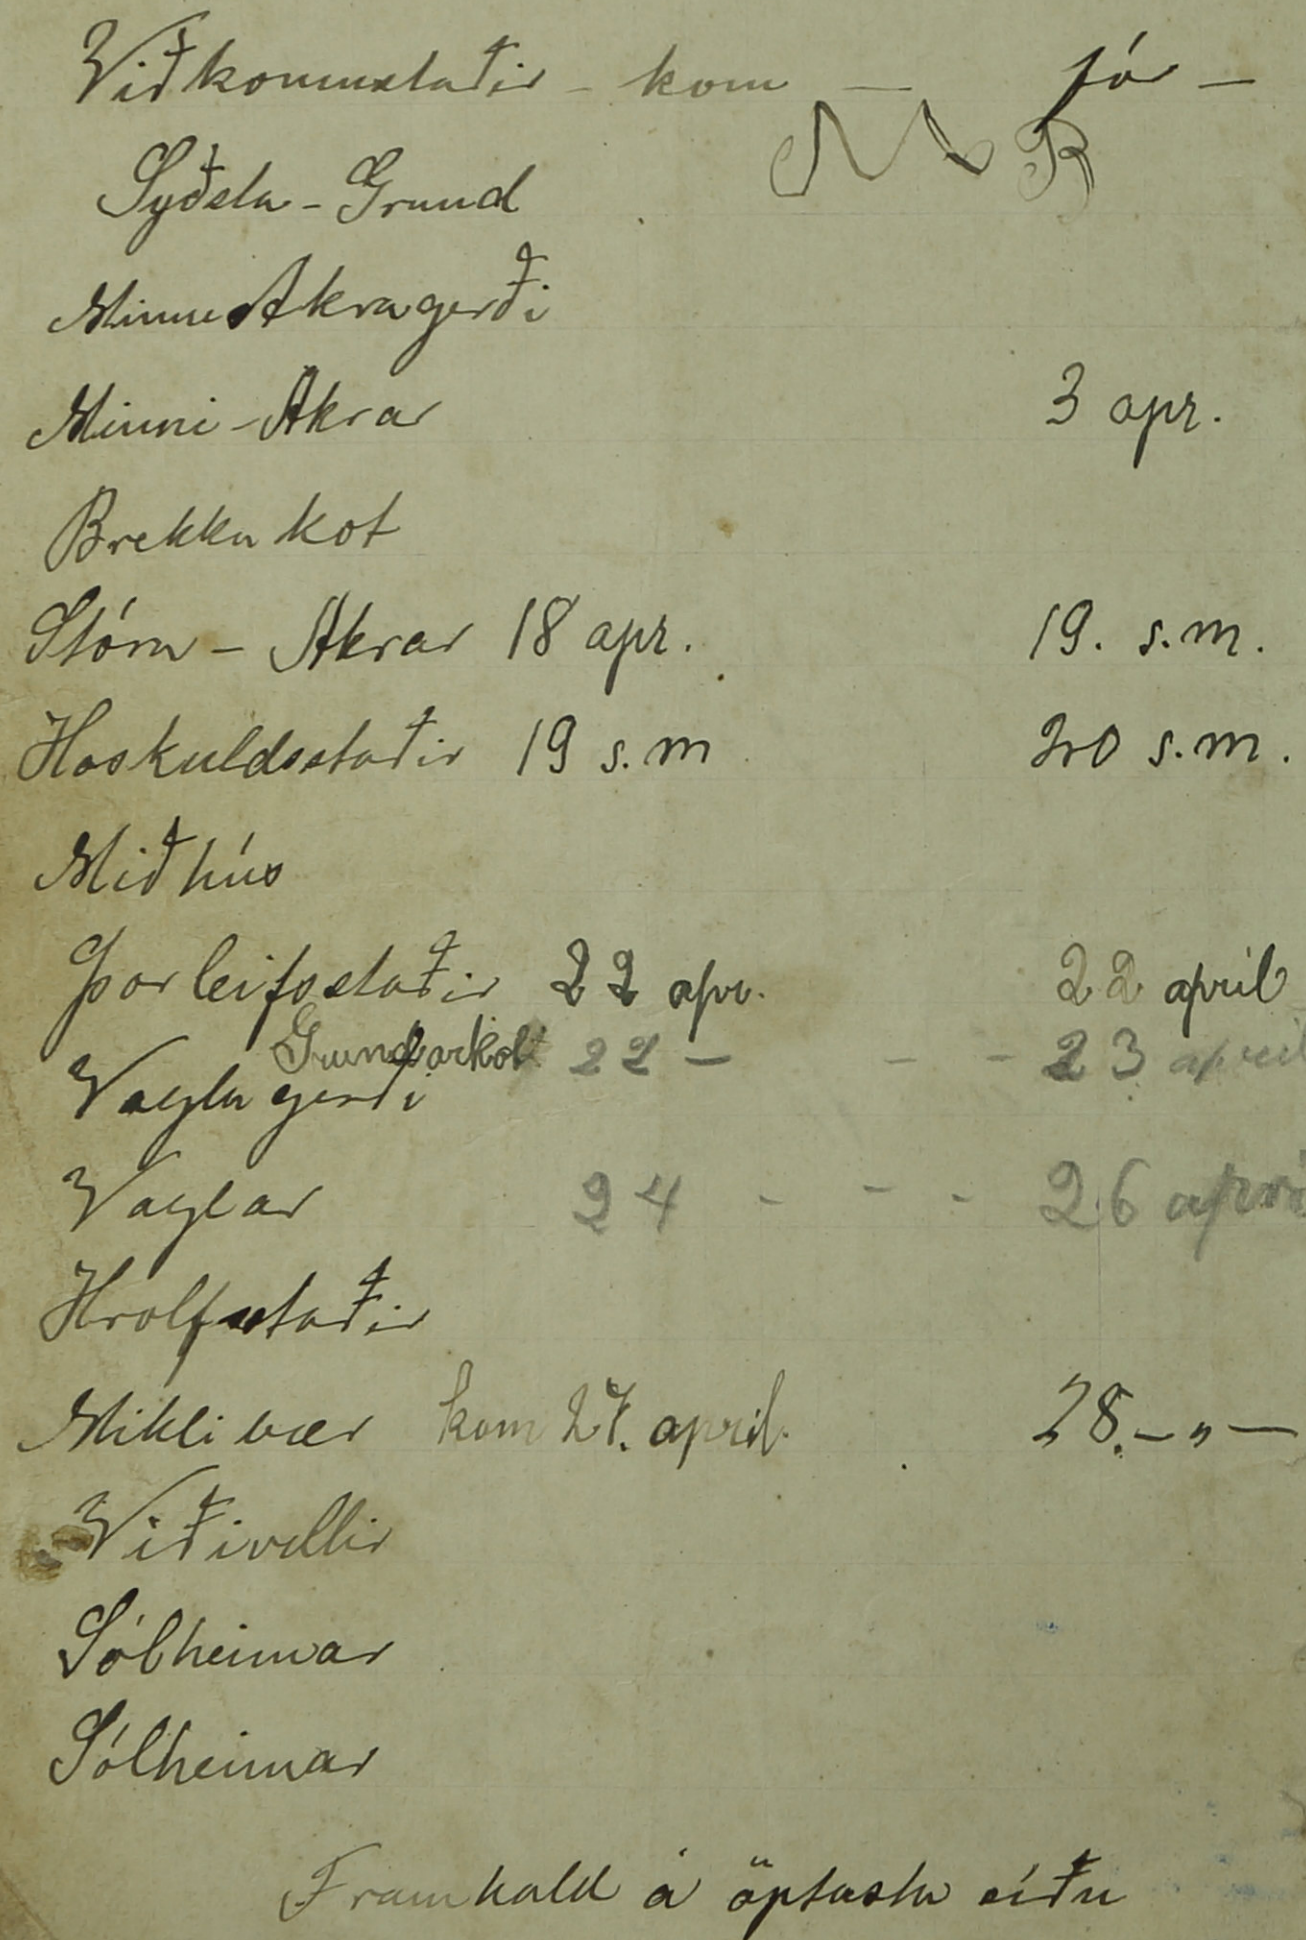 Viðkomustaðir - kom — fór —
M B
Syðsta - Grund
Minne Akragerði
Minni - Akrar 3 apr.
Brekkukot
Stóru - Akrar 18 apr. 19. s.m.
Hoskuldsstaðir 19 s.m 20 s.m.
Miðhús
Þorleifsstaðir 22 apr. 22 apríl
Grundarkot 22 — - - 23 apríl
Vaglagerði
Vaglar 24 - - - 26 apríl
Hrolfsstaðir
Miklibær kom 27. apríl. 28. — „ —
Viðivellir
Sólheimar
Sólheimar
Framhald á öptustu síðu